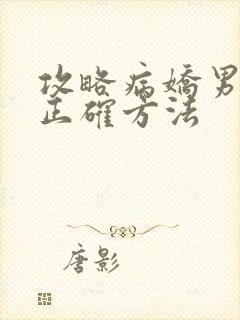 攻略病嬌男
正確方法
唐影